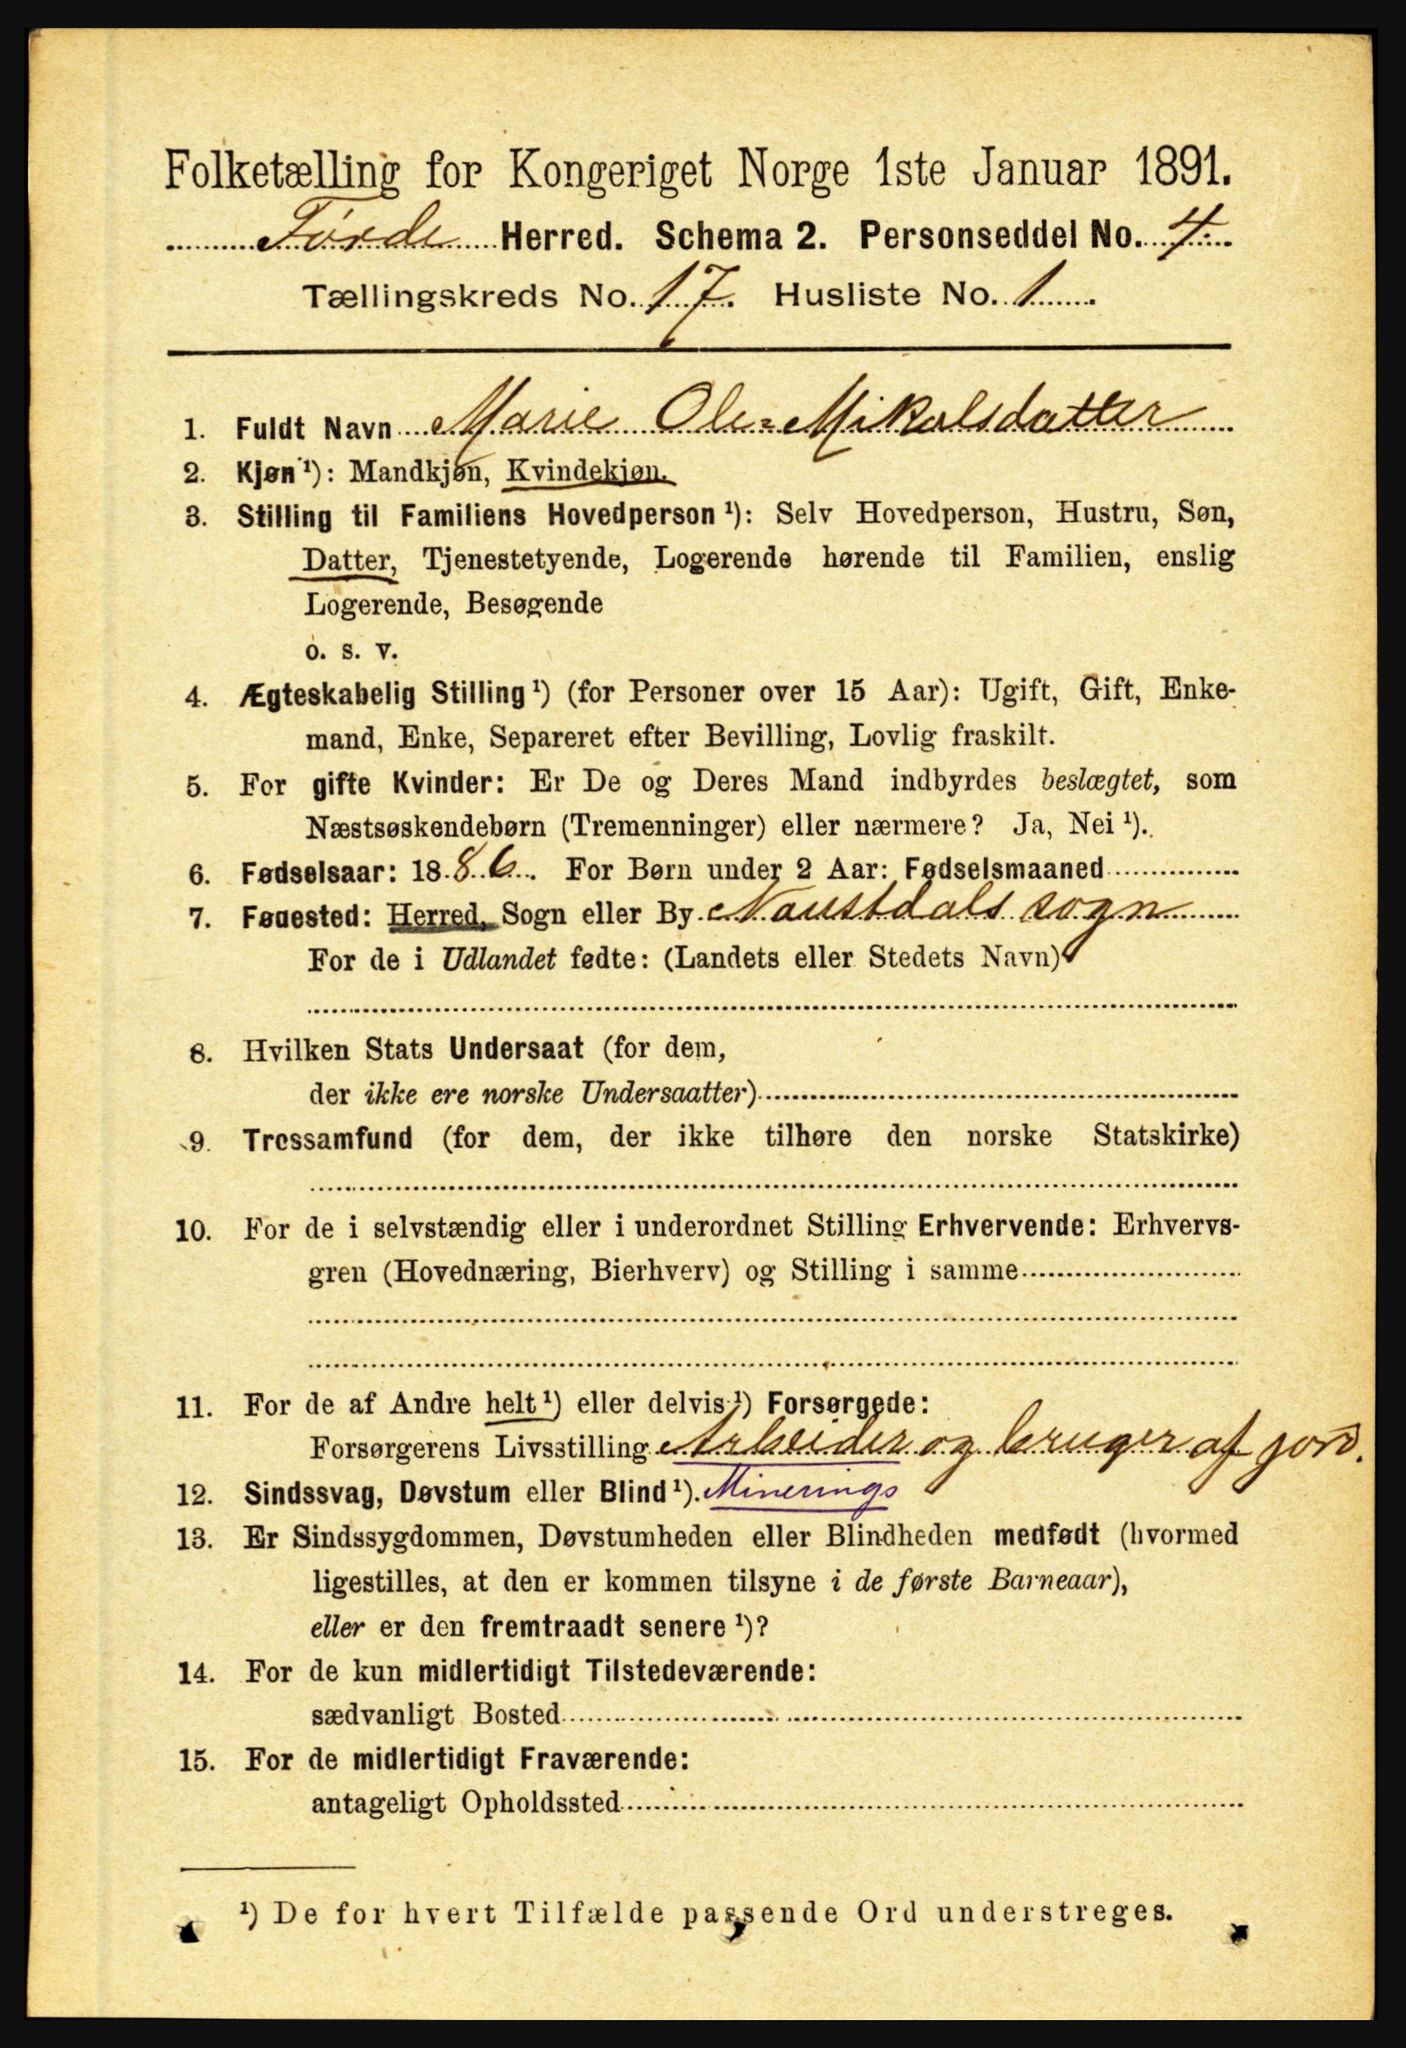 Folketælling for Kongeriget Norge 1ste Januar 1891.
Førde Herred. Schema 2. Personseddel No. 4.
Tællingskreds No. 17. Husliste No. 1
1. Fuldt Navn Marie Ole= Mikalsdatter
2. Kjøn¹): Mandkjøn, Kvindekjøn.
3. Stilling til Familiens Hovedperson¹): Selv Hovedperson, Hustru, Søn,
Datter, Tjenestetyende, Logerende hørende til Familien, enslig
Logerende, Besøgende
o. s. v.
4. Ægteskabelig Stilling¹) (for Personer over 15 Aar): Ugift, Gift, Enke-
mand, Enke, Separeret efter Bevilling, Lovlig fraskilt.
5. For gifte Kvinder: Er De og Deres Mand indbyrdes beslægtet, som
Næstsøskendebørn (Tremenninger) eller nærmere? Ja, Nei¹).
6. Fødselsaar: 1886. For Børn under 2 Aar: Fødselsmaaned
7. Fødested: Herred, Sogn eller By Naustdals sogn
For de i Udlandet fødte: (Landets eller Stedets Navn)
8. Hvilken Stats Undersaat (for dem,
der ikke ere norske Undersaatter)
9. Trossamfund (for dem, der ikke tilhøre den norske Statskirke)
10. For de i selvstændig eller i underordnet Stilling Erhvervende: Erhvervs-
gren (Hovednæring, Bierhverv) og Stilling i samme
11. For de af Andre helt¹) eller delvis¹) Forsørgede:
Forsørgerens Livsstilling Arbeider og bruger af jord.
12. Sindssvag, Døvstum eller Blind¹). Minerings
13. Er Sindssygdommen, Døvstumheden eller Blindheden medfødt (hvormed
ligestilles, at den er kommen tilsyne i de første Barneaar),
eller er den fremtraadt senere¹)?
14. For de kun midlertidigt Tilstedeværende:
sædvanligt Bosted
15. For de midlertidigt Fraværende:
antageligt Opholdssted
¹) De for hvert Tilfælde passende Ord understreges.